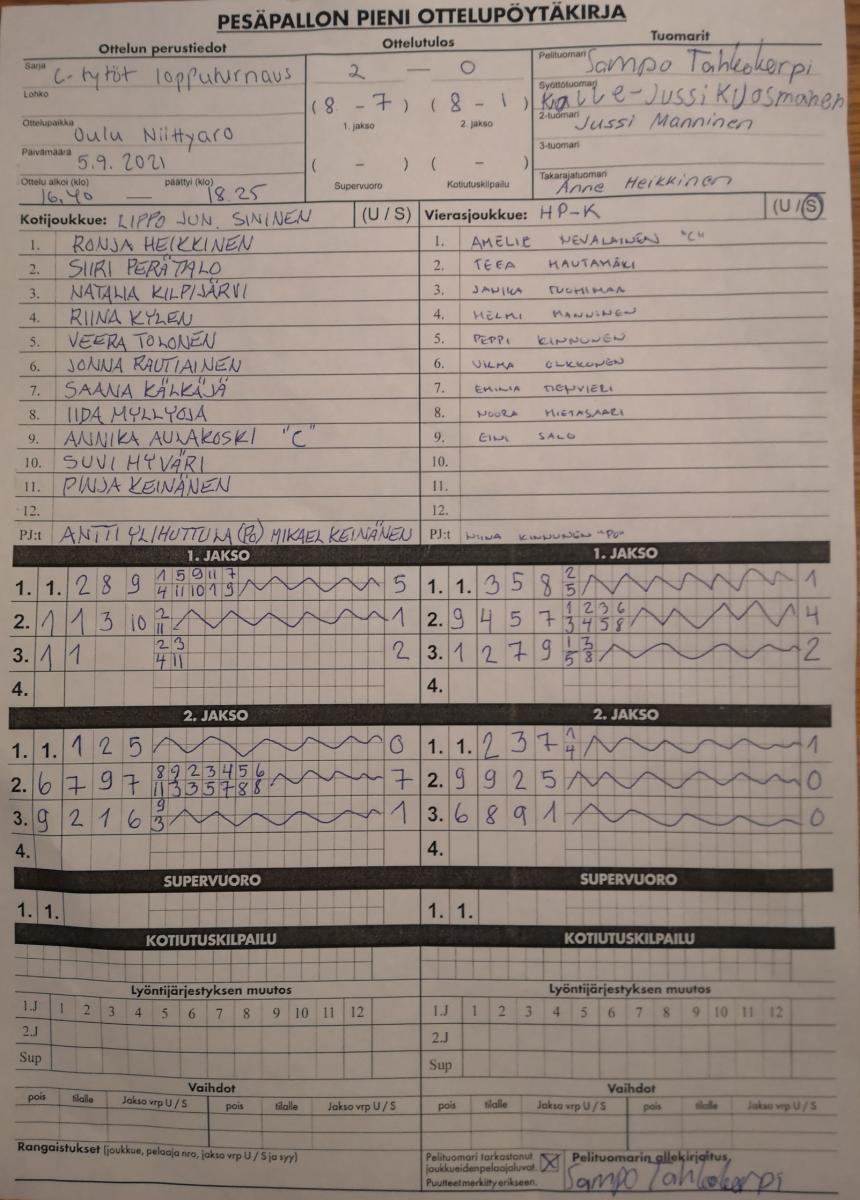 PESÄPALLON PIENI OTTELUPÖYTÄKIRJA
Ottelun perustiedot Ottelutulos Tuomarit
Sarja C-tytöt lopputurnaus 2 — 0 Pelituomari Sampo Tahkokerpi
Lohko (8 - 7) (8 - 1) Syöttötuomari Kalle-Jussi Kuosmanen
1. jakso 2. jakso
Ottelupaikka Oulu Niittyaro 2-tuomari Jussi Manninen
Päivämäärä 5.9. 2021 ( - ) ( - ) 3-tuomari
Ottelu alkoi (klo) päättyi (klo) Supervuoro Kotiutuskilpailu Takarajatuomari
16.40 — 18.25 Anne Heikkinen
Kotijoukkue: LIPPO JUN. SININEN (U / S) Vierasjoukkue: HP-K (U / S)
1. RONJA HEIKKINEN 1. AMELIE NEVALAINEN "C"
2. SIIRI PERÄTALO 2. TEEA HAUTAMÄKI
3. NATALIA KILPIJÄRVI 3. JANIKA TUOHIMAA
4. RIINA KYLEN 4. HELMI MANNINEN
5. VEERA TOLONEN 5. PEPPI KINNUNEN
6. JONNA RAUTIAINEN 6. VILMA OLKKONEN
7. SAANA KÄLKÄJÄ 7. EMILIA
8. IIDA MYLLYOJA 8. NOORA HIETASAARI
9. ANNIKA AULAKOSKI "C" 9. EINI SALO
10. SUVI HYVÄRI 10.
11. PINJA KEINÄNEN 11.
12. 12.
PJ:t ANTTI YLIHUTTULA (PO) MIKAEL KEINÄNEN PJ:t NIINA KINNUNEN "PO"
1. JAKSO 1. JAKSO
1. 1. 2 8 9 1 5 9 11 7 5 1. 1. 3 5 8 2 1
4 11 10 1 9 5
2. 1 1 3 10 2 1 2. 9 4 5 7 1 2 3 6 4
11 3 4 5 8
3. 1 1 2 3 2 3. 1 2 7 9 1 3 2
4 11 5 8
4. 4.
2. JAKSO 2. JAKSO
1. 1. 1 2 5 0 1. 1. 2 3 7 1 1
4
2. 6 7 9 7 8 9 2 3 4 5 6 7 2. 9 9 2 5 0
11 3 3 5 7 8 8
3. 9 2 1 6 9 1 3. 6 8 9 1 0
3
4. 4.
SUPERVUORO SUPERVUORO
1. 1. 1. 1.
KOTIUTUSKILPAILU KOTIUTUSKILPAILU
Lyöntijärjestyksen muutos Lyöntijärjestyksen muutos
1.J 1 2 3 4 5 6 7 8 9 10 11 12 1.J 1 2 3 4 5 6 7 8 9 10 11 12
2.J 2.J
Sup Sup
Vaihdot Vaihdot
pois tilalle Jakso vrp U / S pois tilalle Jakso vrp U / S pois tilalle Jakso vrp U / S pois tilalle Jakso vrp U / S
Rangaistukset (joukkue, pelaaja nro, jakso vrp U / S ja syy) Pelituomari tarkastanut Pelituomarin allekirjoitus,
joukkueiden pelaajaluvat. Sampo Tahkokerpi
Puutteet merkitty erikseen.